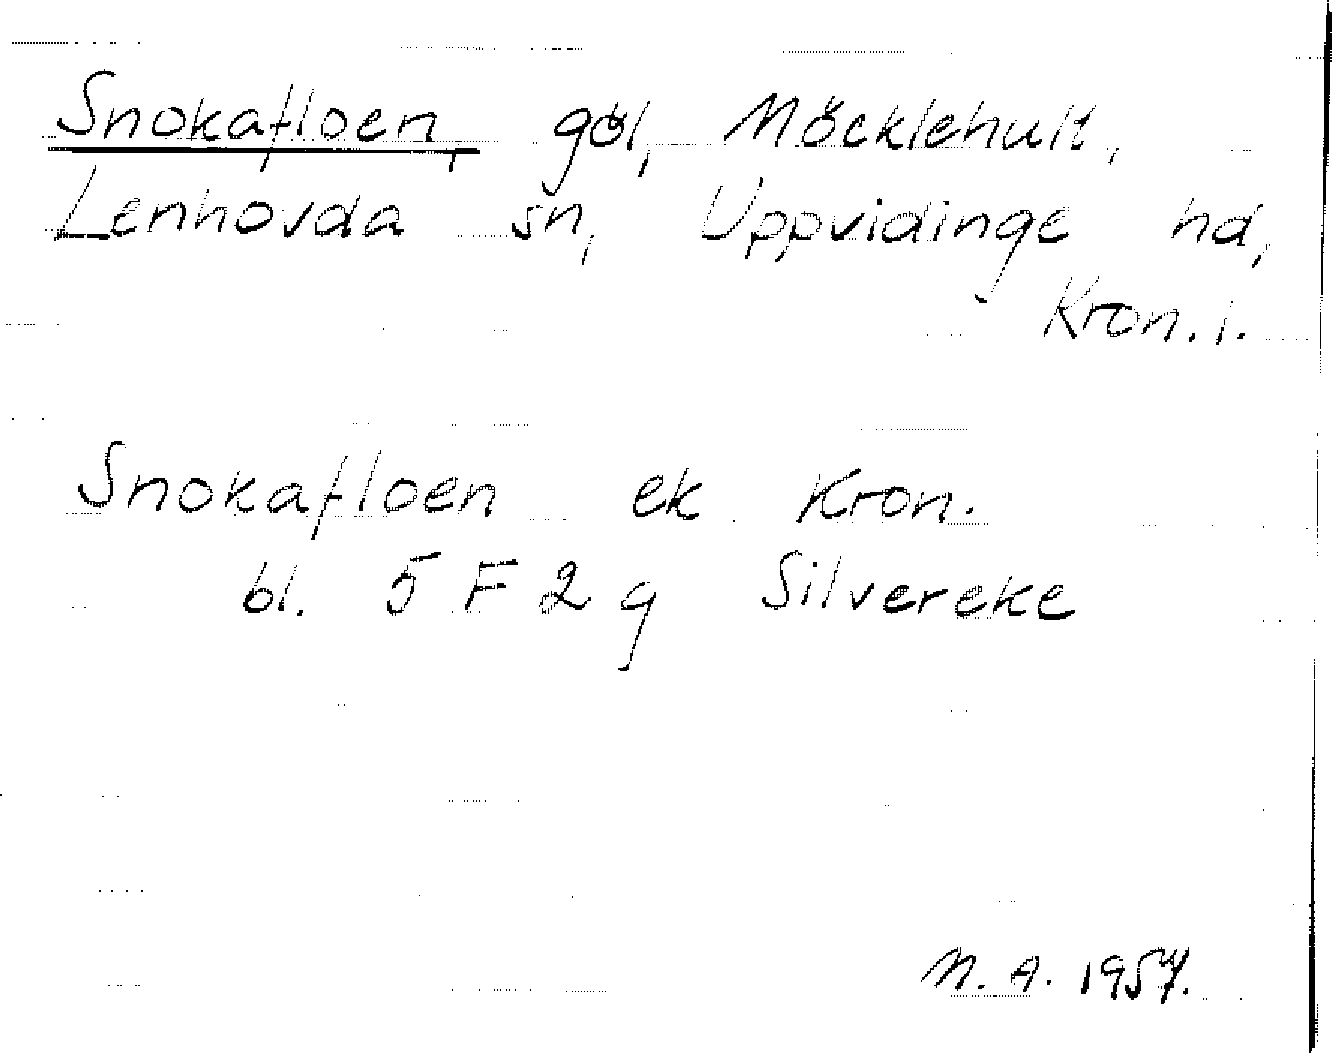 Snokafloen, göl, Möcklehult,
Lenhovda sn, Uppvidinge hd,
Kron. l.
Snokafloen ek Kron.
bl. 5 F 2 g Silvereke
N. A. 1957.